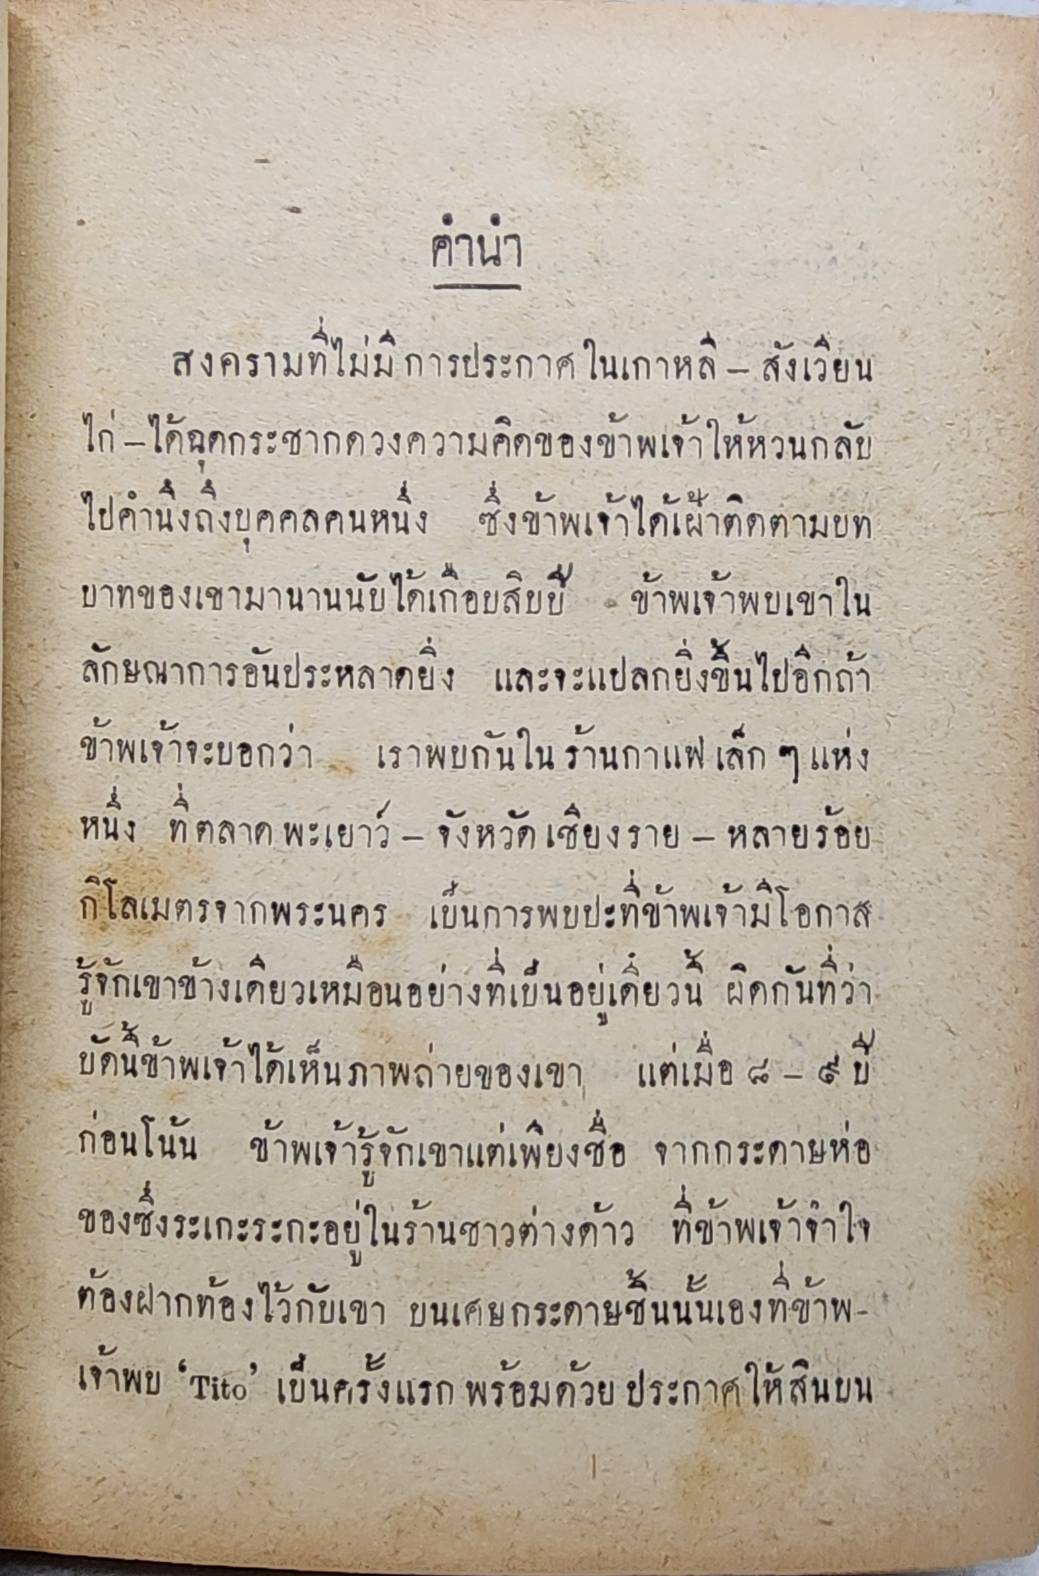 คำนำ
สงครามที่ไม่มีการประกาศในเกาหลี – สังเวียน
ไก่ – ได้ฉุดกระชากดวงความคิดของข้าพเจ้าให้หวนกลับ
ไปคำนึงถึงบุคคลคนหนึ่ง ซึ่งข้าพเจ้าได้เฝ้าติดตามบท
บาทของเขามานานนับได้เกือบสิบปี ข้าพเจ้าพบเขาใน
ลักษณาการอันประหลาดยิ่ง และจะแปลกยิ่งขึ้นไปอีกถ้า
ข้าพเจ้าจะบอกว่า เราพบกันในร้านกาแฟเล็ก ๆ แห่ง
หนึ่ง ที่ตลาดพะเยาว์ – จังหวัดเชียงราย – หลายร้อย
กิโลเมตรจากพระนคร เป็นการพบปะที่ข้าพเจ้ามีโอกาส
รู้จักเขาข้างเดียวเหมือนอย่างที่เป็นอยู่เดี๋ยวนี้ ผิดกันที่ว่า
บัดนี้ข้าพเจ้าได้เห็นภาพถ่ายของเขา แต่เมื่อ ๘ – ๙ ปี
ก่อนโน้น ข้าพเจ้ารู้จักเขาแต่เพียงชื่อ จากกระดาษห่อ
ของซึ่งระเกะระกะอยู่ในร้านชาวต่างด้าว ที่ข้าพเจ้าจำใจ
ต้องฝากท้องไว้กับเขา บนเศษกระดาษชิ้นนั้นเองที่ข้าพ-
เจ้าพบ ‘Tito’ เป็นครั้งแรก พร้อมด้วย ประกาศให้สินบน